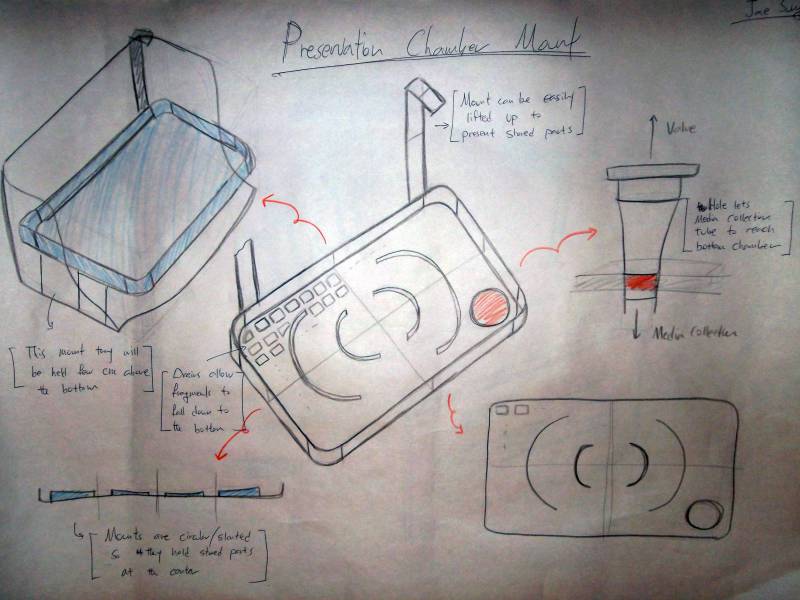 Preservation Chamber Mount
Mount can be easily
lifted up to
present stored parts
Valve
Hole lets
Media collection
tube to reach
bottom chamber
Media collection
This mount tray will
be held few cm above
the bottom
Drains allow
fragments to
fall down to
the bottom
Mounts are circular/slanted
so they hold stored parts
at the center